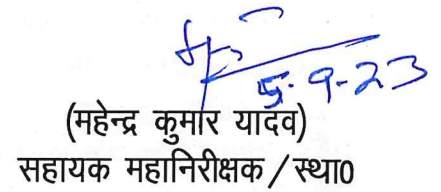 5-9-23
(महेन्द्र कुमार यादव)
सहायक महानिरीक्षक/स्था0